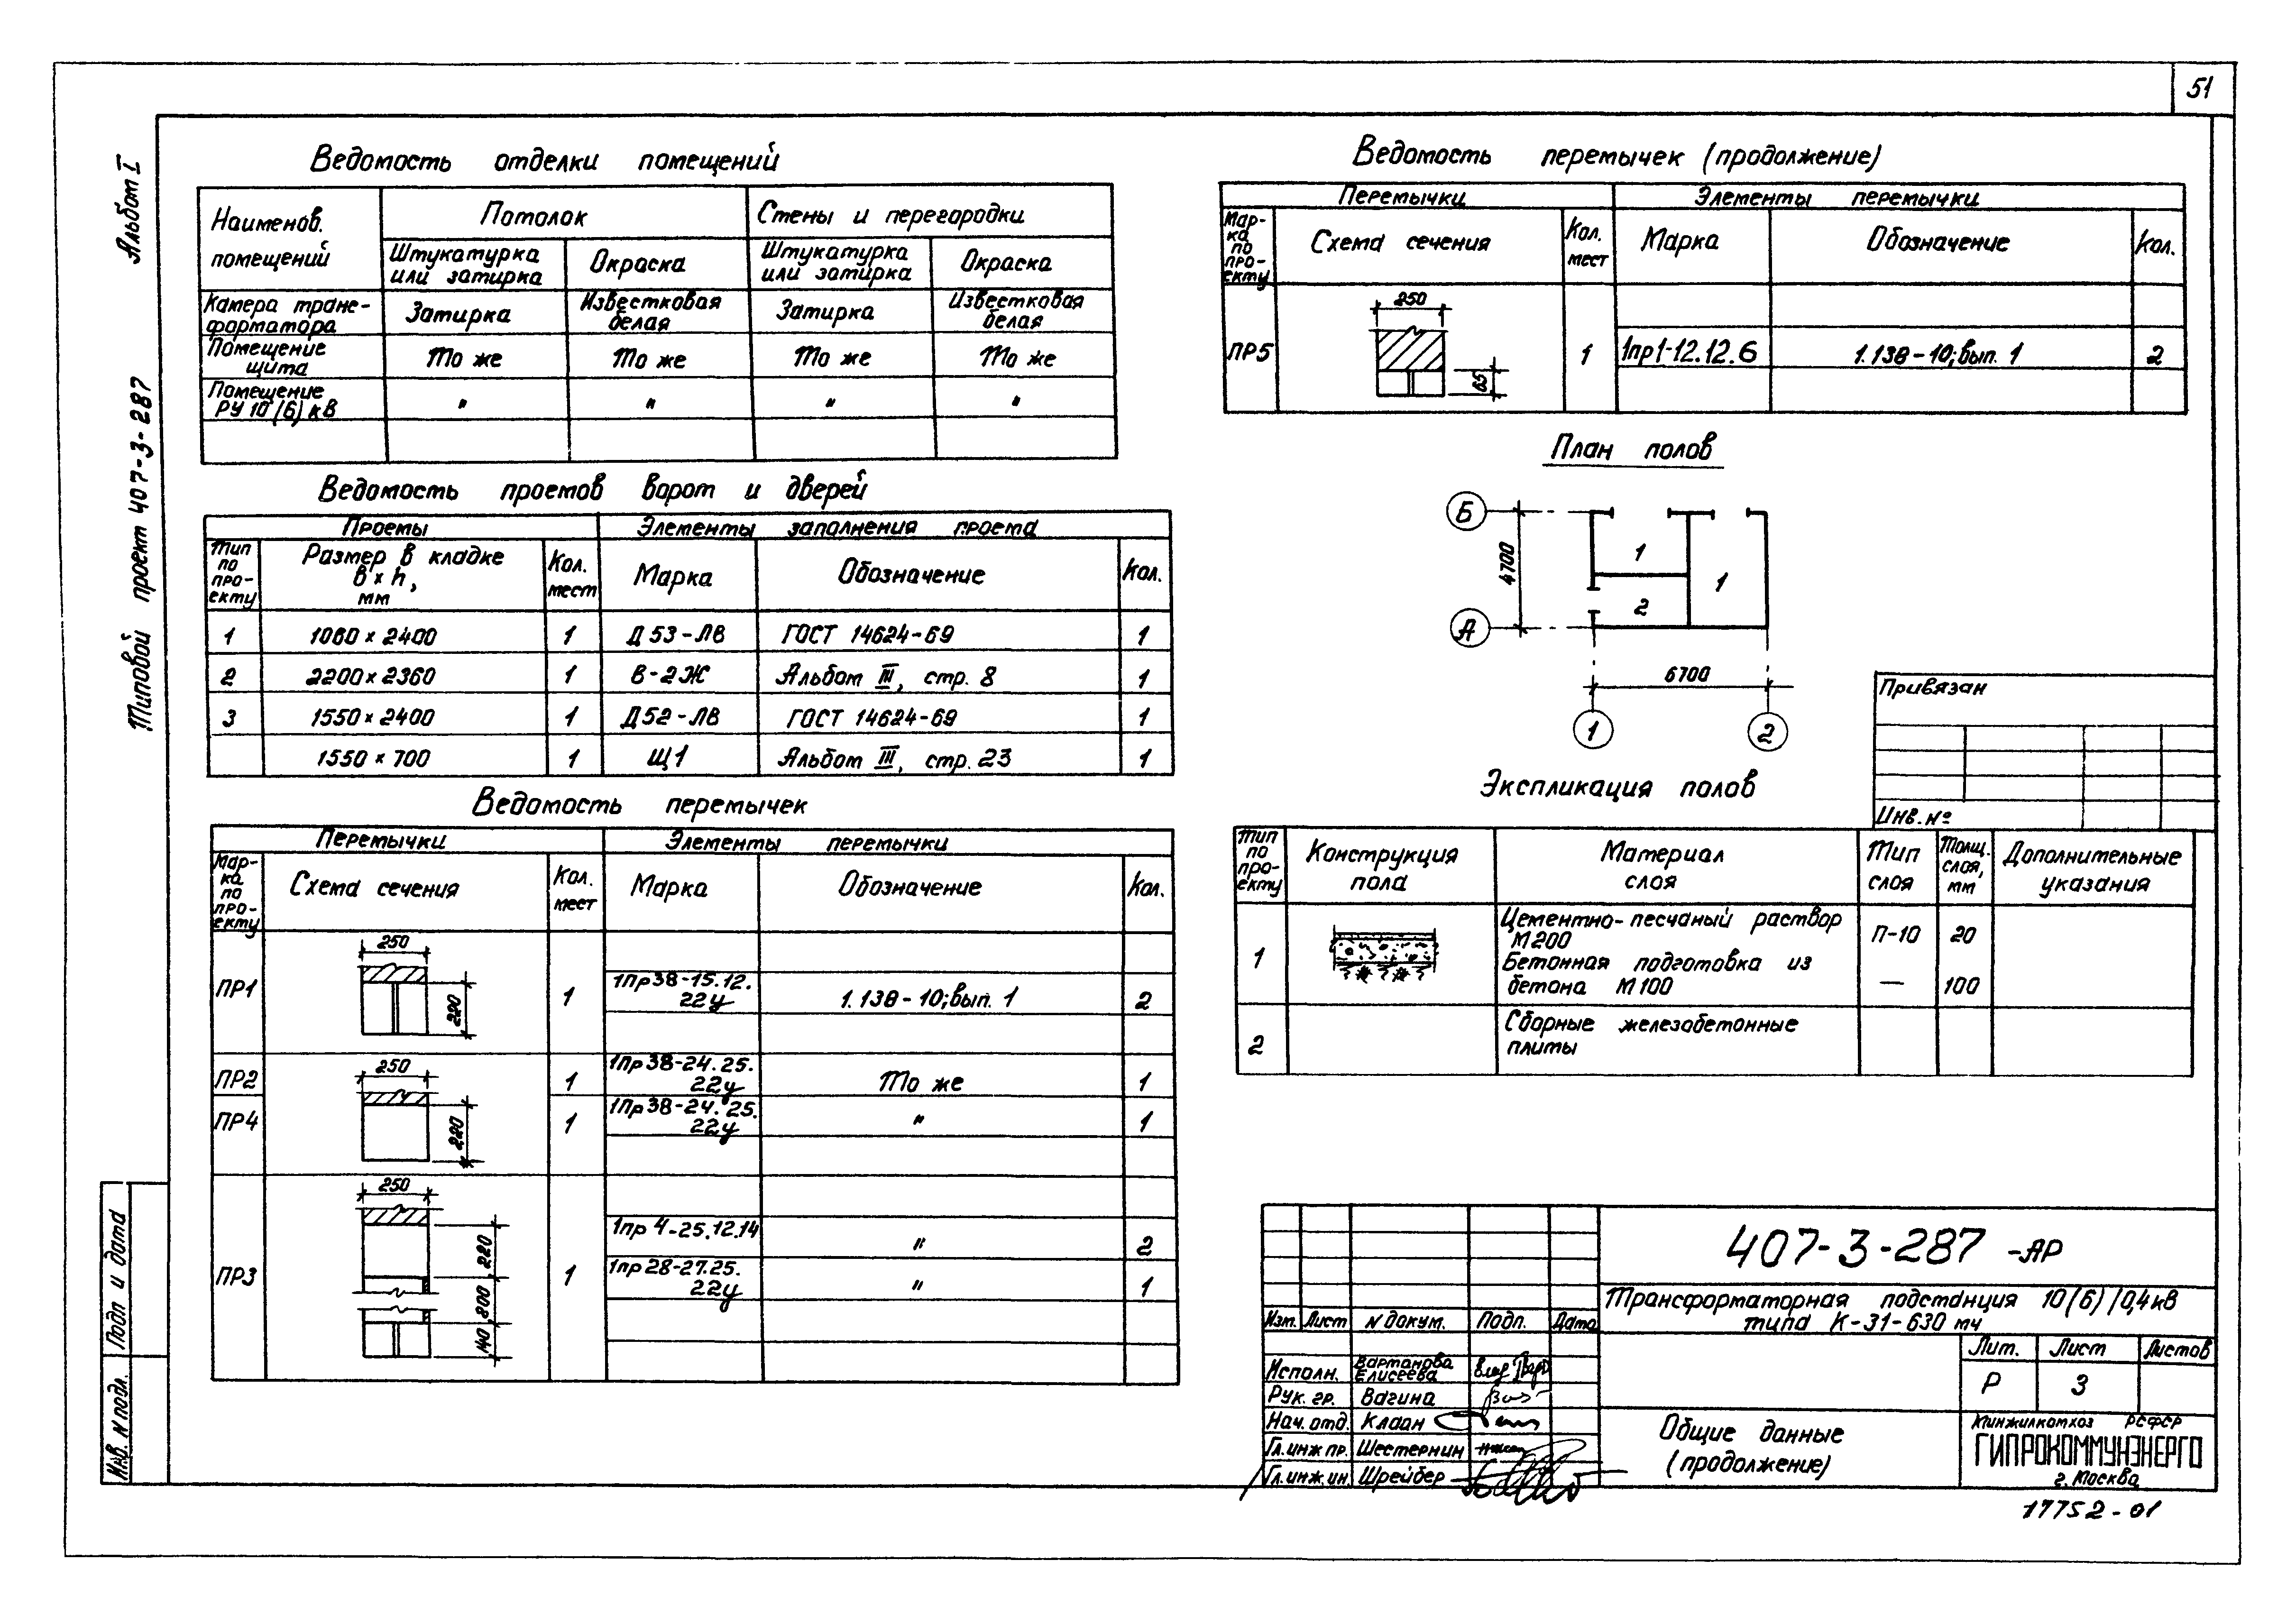 51
Альбом I
Типовой проект 407-3-287
Подп и дата
Инв. N подл.
Ведомость отделки помещений
Наименов. помещений
Потолок
Стены и перегородки
Штукатурка или затирка
Окраска
Штукатурка или затирка
Окраска
Камера транс-форматора
Затирка
Известковая белая
Затирка
Известковая белая
Помещение щита
То же
То же
То же
То же
Помещение РУ 10(6) кВ
"
"
"
"
Ведомость проемов ворот и дверей
Проемы
Элементы заполнения проема
Тип по про-екту
Размер в кладке в х h, мм
Кол. мест
Марка
Обозначение
Кол.
1 1060 х 2400 1 Д53-ЛВ ГОСТ 14624-69 1
2 2200 х 2360 1 В-2Ж Альбом III, стр. 8 1
3 1550 х 2400 1 Д52-ЛВ ГОСТ 14624-69 1
1550 х 700 1 Щ1 Альбом III, стр. 23 1
Ведомость перемычек
Перемычки
Элементы перемычки
Мар-ка по про-екту
Схема сечения
Кол. мест
Марка
Обозначение
Кол.
ПР1
250
220
1
1Пр38-15.12.22у
1.138-10; вып. 1
2
ПР2
250
1
1Пр38-24.25.22у
То же
1
ПР4
220
1
1Пр38-24.25.22у
"
1
ПР3
250
220
800
140
1
1пр 4-25.12.14
"
2
1пр28-27.25.22у
"
1
Ведомость перемычек (продолжение)
Перемычки
Элементы перемычки
Мар-ка по про-екту
Схема сечения
Кол. мест
Марка
Обозначение
Кол.
ПР5
250
65
1
1пр1-12.12.6
1.138-10; вып. 1
2
План полов
Б
А
4700
1
1
2
6700
1
2
Привязан
Инв. №
Экспликация полов
Тип по про-екту
Конструкция пола
Материал слоя
Тип слоя
Толщ. слоя, мм
Дополнительные указания
1
Цементно-песчаный раствор М200
П-10
20
Бетонная подготовка из бетона М100
—
100
2
Сборные железобетонные плиты
407-3-287 -АР
Трансформаторная подстанция 10(6)/0,4кВ
типа К-31-630 мч
Изм. Лист N докум. Подп. Дата
Исполн. Вартанова Елисеева
Рук. гр. Вагина
Нач. отд. Клаан
Гл. инж пр. Шестернин
Гл. инж. ин. Шрейбер
Лит. Лист Листов
Р 3
Общие данные
(продолжение)
Минжилкомхоз РСФСР
ГИПРОКОММУНЭНЕРГО
г. Москва
17752-01